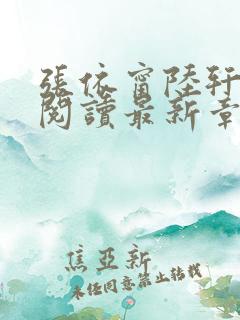 張依甯陸軒
閱讀最新章
焦亞新
未經同意禁止轉載